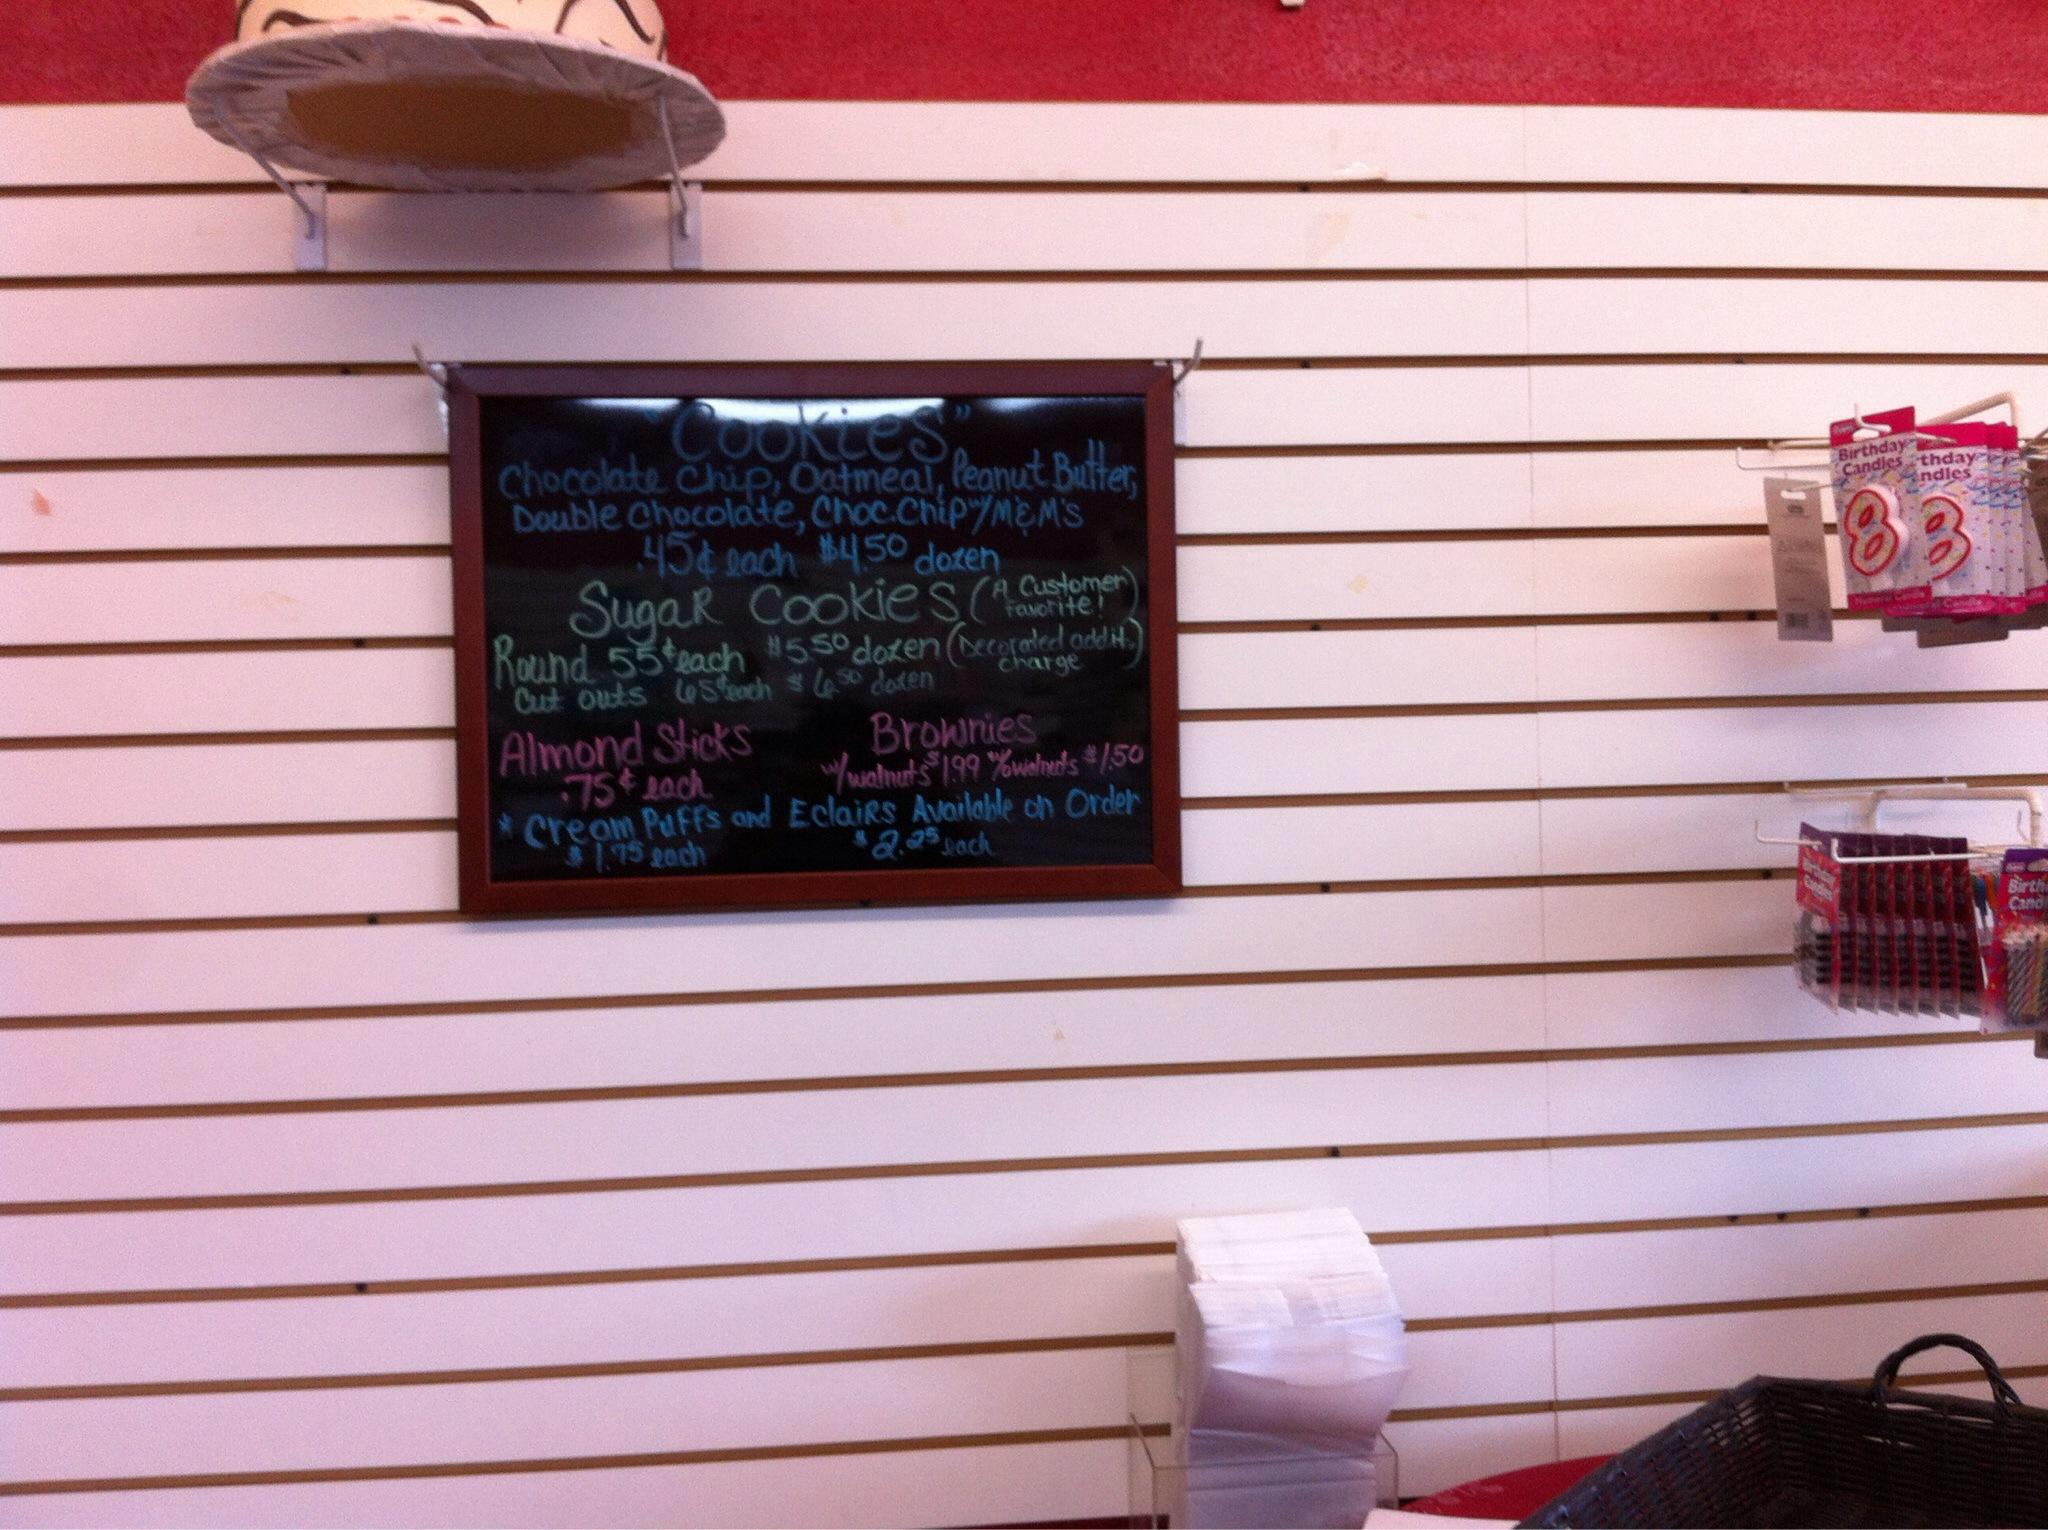 "Cookies"
Chocolate Chip, Oatmeal, Peanut Butter,
Double Chocolate, Choc. Chip w/ M&M's
.45¢ each $4.50 dozen
Sugar Cookies (A Customer
Favorite!)
Round 55¢ each $5.50 dozen (Decorated addit.
charge)
Cut outs 65¢ each $6.50 dozen
Almond Sticks
.75¢ each
Brownies
w/walnuts $1.99 w/o walnuts $1.50
* Cream Puffs and Eclairs Available on Order
$1.75 each $2.25 each
Birthday
Candles
8
thday
ndles
3
Birthday
Candles
Birth
Cand